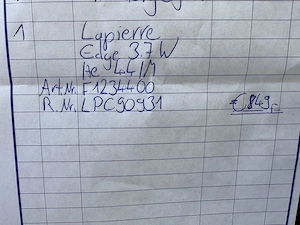 1 Lapierre
Edge 3.7 W
Art.Nr. F1234400
R.Nr. LPC90931 €849,-